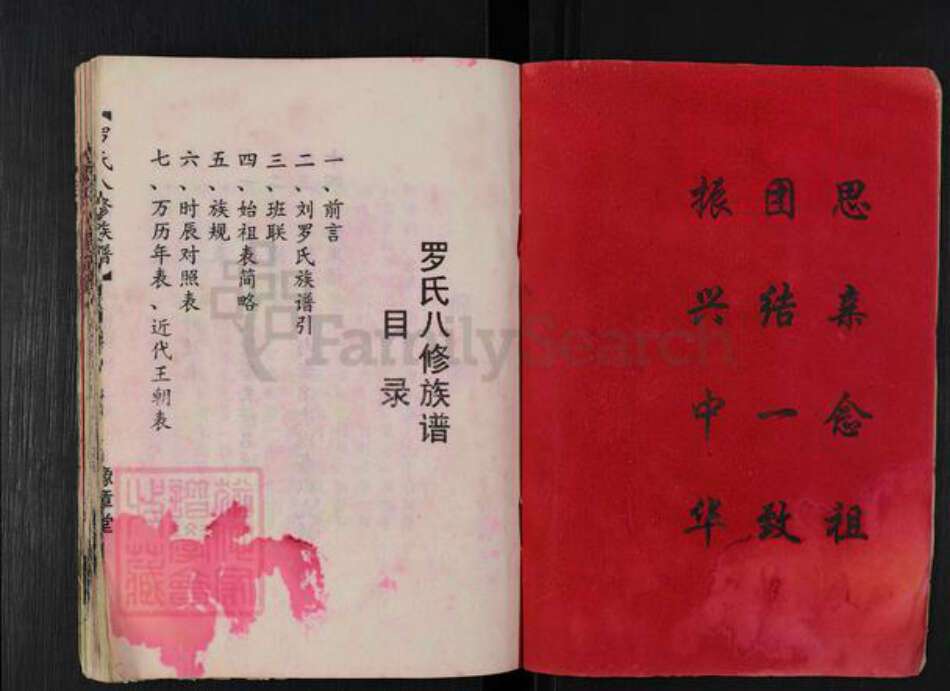 思亲念祖
团结一致
振兴中华
罗氏八修族谱
目录
一、前言
二、刘罗氏族谱引
三、班联
四、始祖表简略
五、族规
六、时辰对照表
七、万历年表、近代王朝表
罗氏八修族谱
豫章堂
FamilySearch